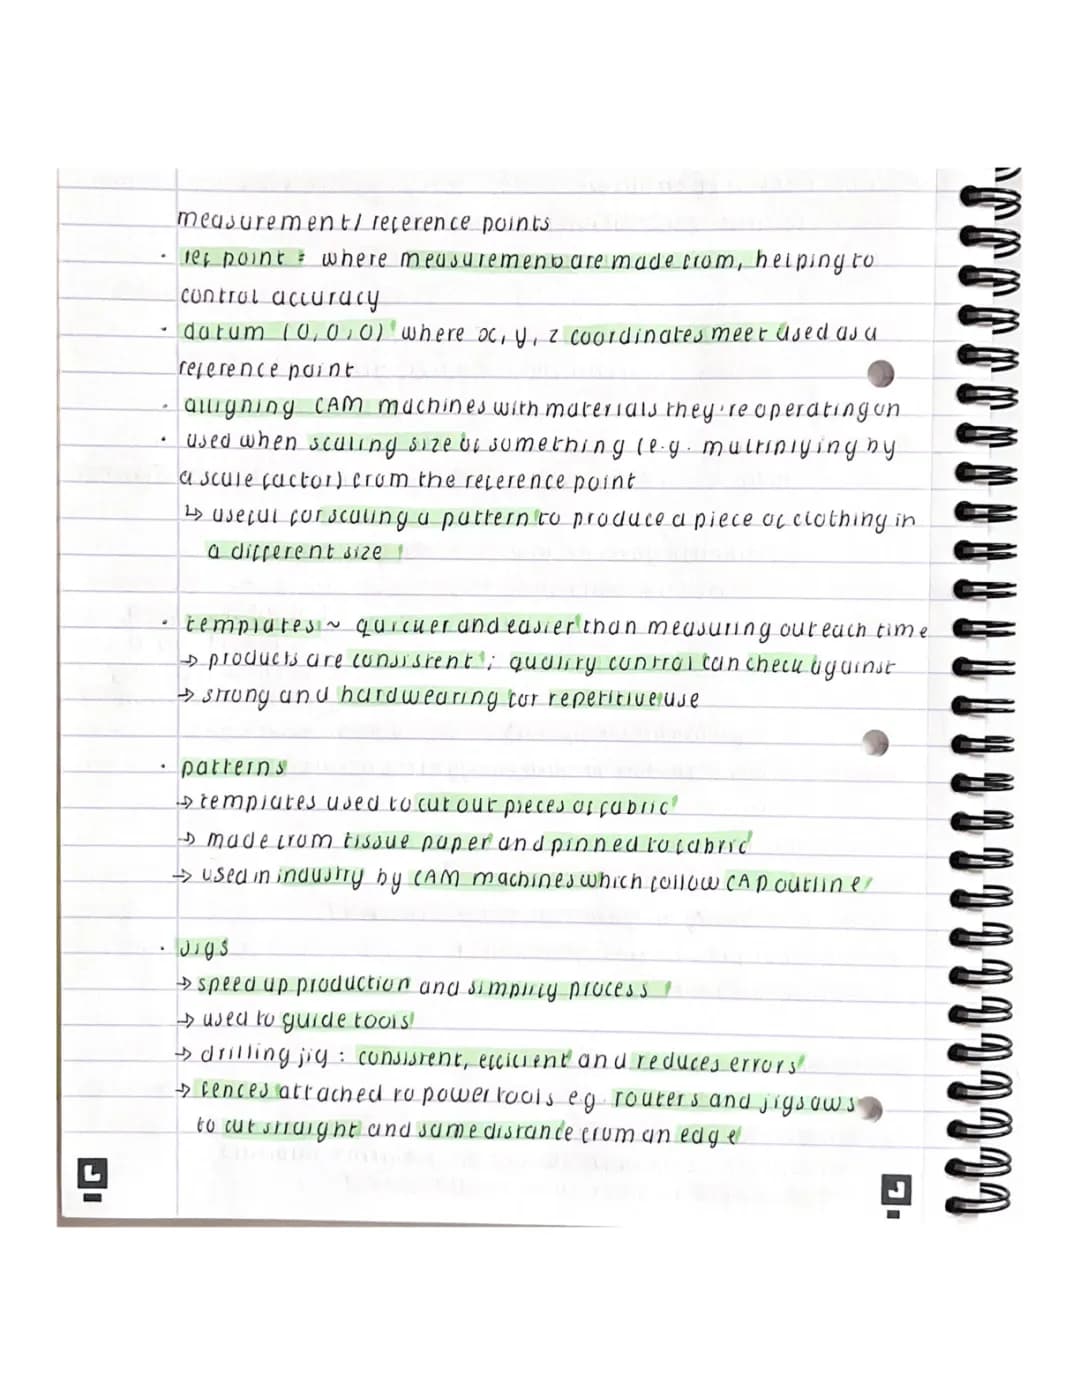 measurement/ reference points
· ref point = where measurements are made from, helping to
control accuracy
· datum (0,0,0) where x, y, z coordinates meet used as a
reference point
· alligning CAM machines with materials they're operating on
· used when scaling size of something (e.g. multiplying by
a scale factor) from the reference point
↳ useful for scaling a pattern to produce a piece of clothing in
a different size
· templates ~ quicker and easier than measuring out each time
→ products are consistent; quality control can check against
→ strong and hardwearing for repetitive use
· patterns
→ templates used to cut out pieces of fabric
→ made from tissue paper and pinned to fabric
→ used in industry by CAM machines which follow CAD outline
· Jigs
→ speed up production and simplify process
→ used to guide tools
→ drilling jig : consistent, efficient and reduces errors
→ fences attached to power tools eg. routers and jigsaws
to cut straight and same distance from an edge